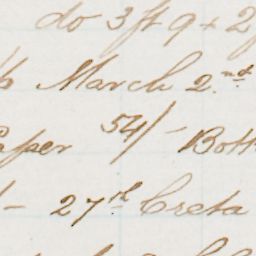 do 3ft 9 + 2
March 2.nd
Paper 54/- Bott
- 27th Creta